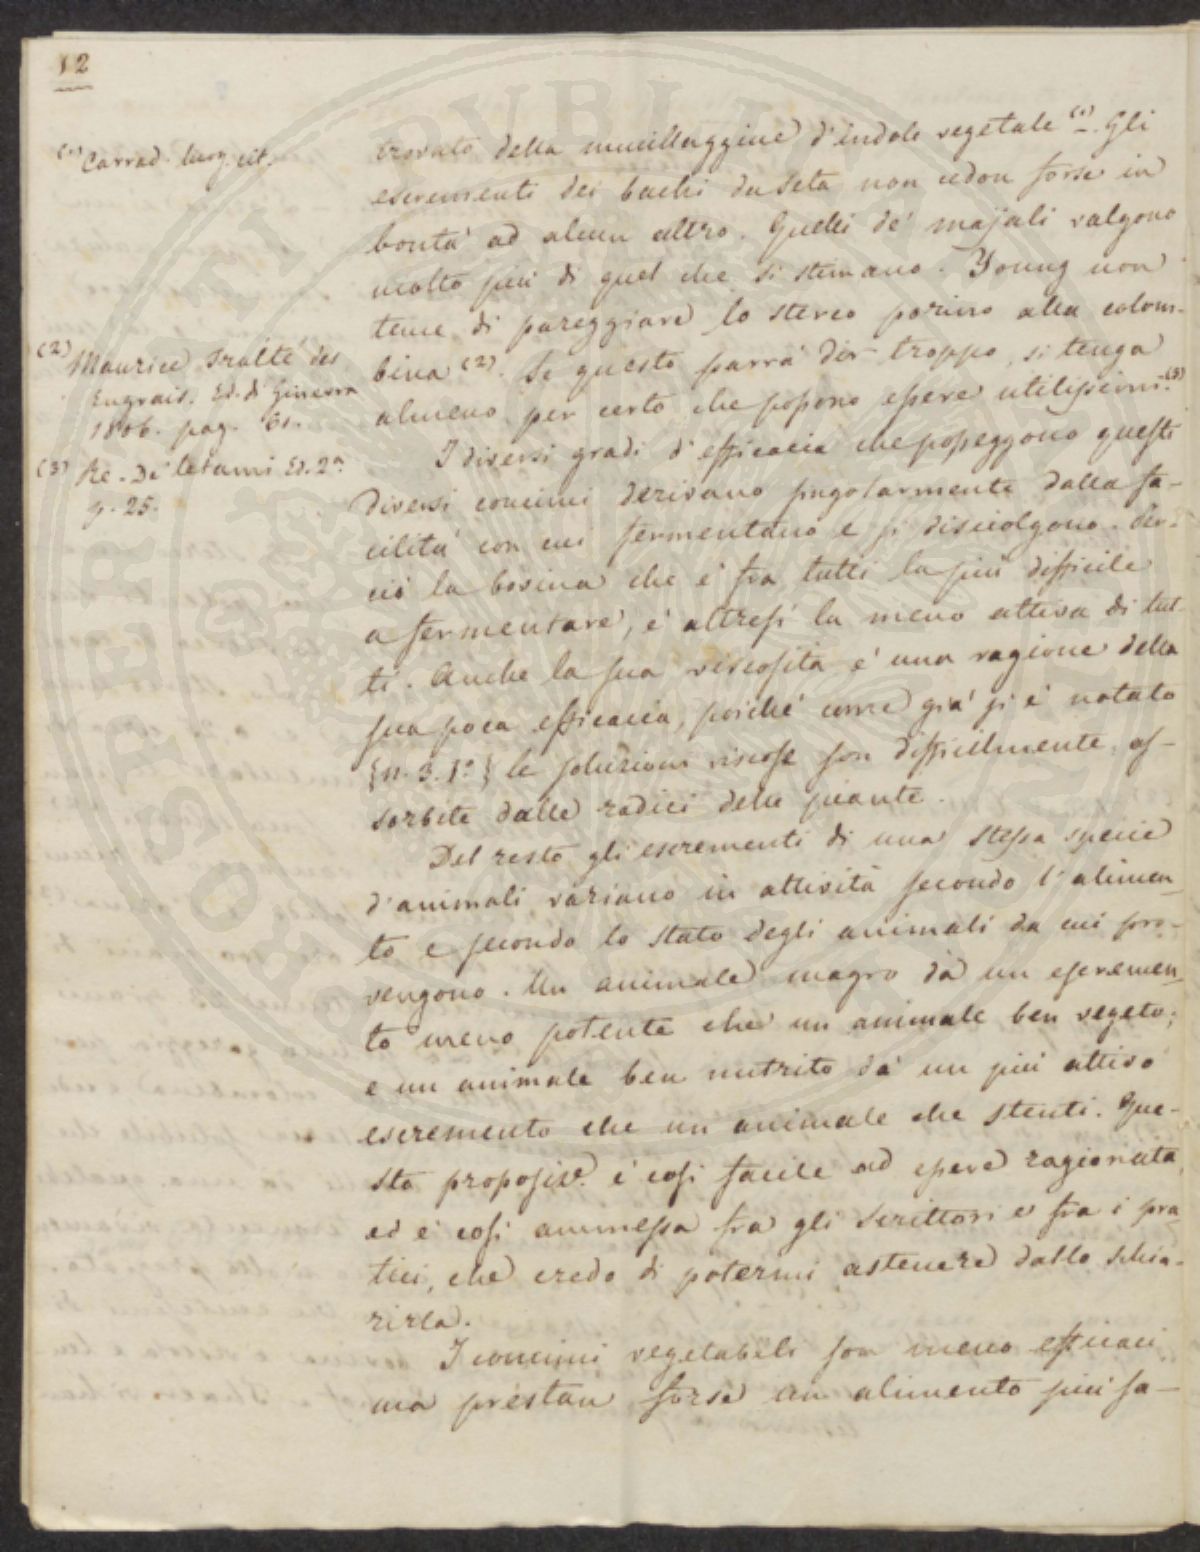 12
(1) Carrad. luog. cit.
(2) Maurice Traité des
Engrais. Ed. di Ginevra
1806. pag. 61.
(3) Re. De' letami Ed. 2ª
p. 25.
trovato della mucillaggine d'indole vegetale (1). Gli
escrementi dei bachi da seta non cedon forse in
bontà ad alcun altro. Quelli de' majali valgono
molto più di quel che si stimano. Young non
teme di pareggiare lo sterco porcino alla colom-
bina (2). Se questo parrà dir troppo, si tenga
almeno per certo che possono essere utilissimi. (3)
I diversi gradi d'efficacia che posseggono questi
diversi concimi derivano singolarmente dalla fa-
cilità con cui fermentano e si disciolgono. Per-
ciò la bovina che è fra tutti la più difficile
a fermentare, è altresì la meno attiva di tut-
ti. Anche la sua viscosità è una ragione della
sua poca efficacia, poichè come già si è notato
{n. 3. 1º} le soluzioni viscose son difficilmente as-
sorbite dalle radici delle piante.
Del resto gli escrementi di una stessa specie
d'animali variano in attività secondo l'alimen-
to e secondo lo stato degli animali da cui pro-
vengono. Un animale magro dà un escremen-
to meno potente che un animale ben vegeto;
e un animale ben nutrito dà un più attivo
escremento che un animale che stenti. Que-
sta proposiz.e è così facile ad essere ragionata,
ed è così ammessa fra gli scrittori e fra i pra-
tici, che credo di potermi astenere dallo schia-
rirla.
I concimi vegetabili son meno efficaci
ma prestan forse un alimento più sa-